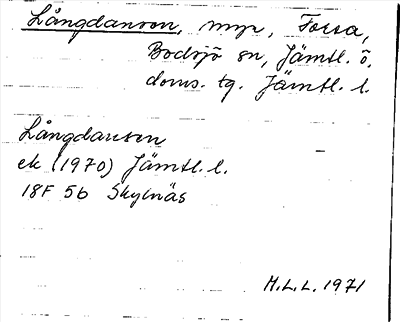 Långdansen, myr, Forsa,
Bodsjö sn, Jämtl. ö.
doms. tg. Jämtl. l.
Långdansen
ek (1970) Jämtl. l.
18F 5b
M.L.L. 1971